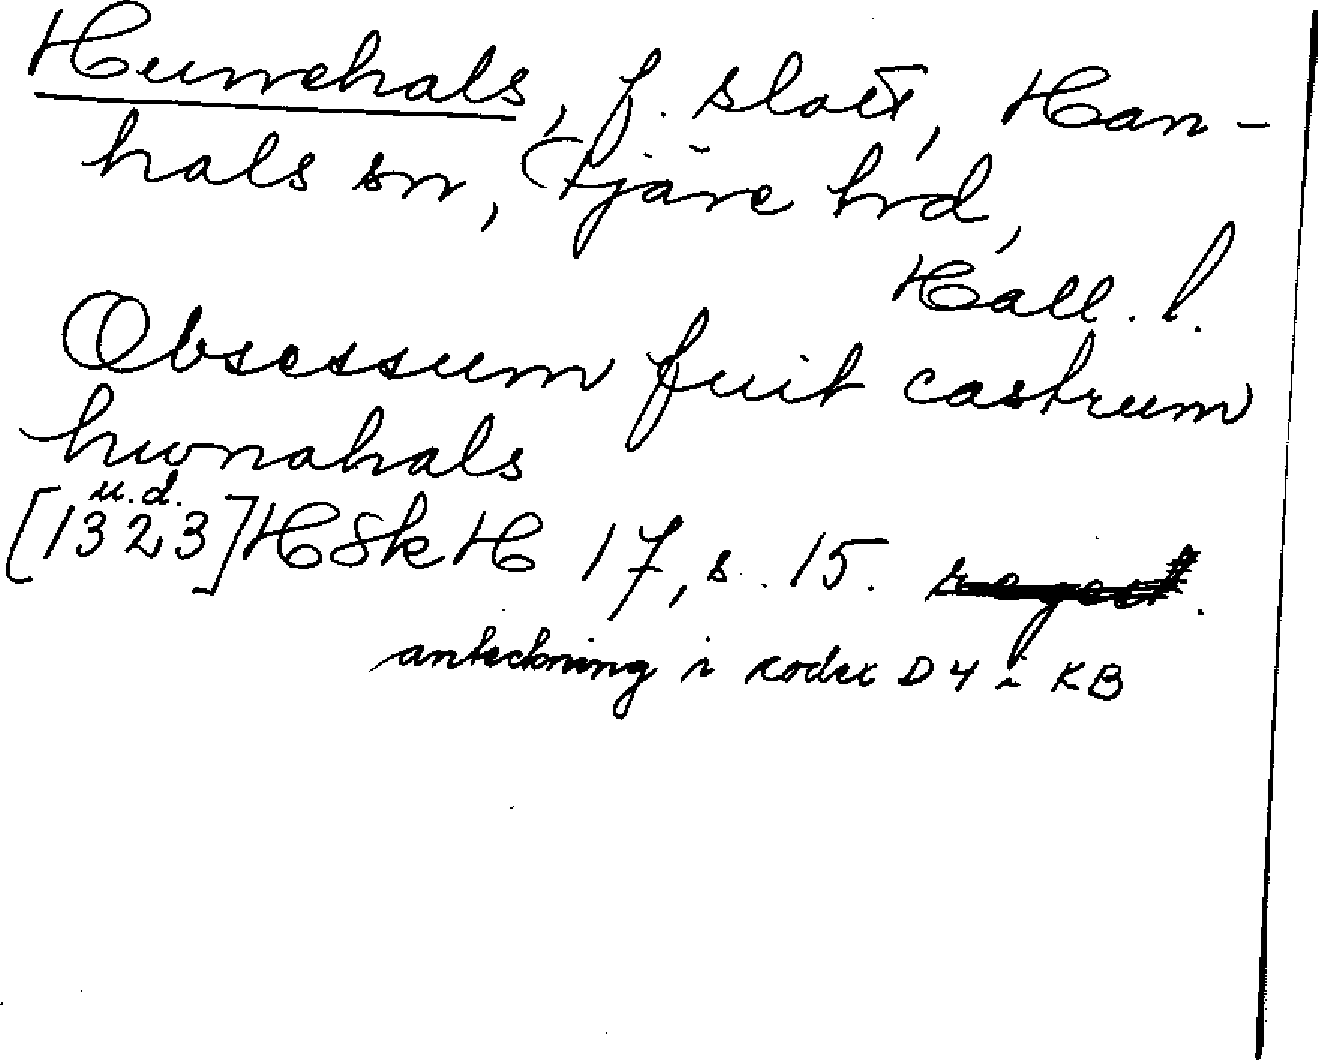 Hunehals, f. slott, Han-
hals sn, Fjäre hrd,
Hall. l.
Obsessum fuit castrum
hwnahals
u. d.
[1323] HSkH 17, s. 15.
anteckning i codex D 4 i KB